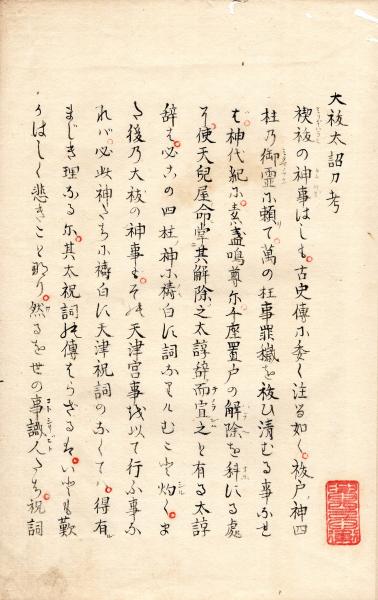 大祓太詔刀考
禊祓の神事はしも。古史傳に委く注る如く。祓戸神四
柱乃御霊に頼て。萬の枉事罪穢を祓ひ清むる事なるせ
は。神代紀に。素盞嗚尊に千座置戸の解除を科する處
に。使天兒屋命掌其解除之太諄辭而宣之と有る太諄
辭は。必この四柱神に禱白す詞なりけむこと灼く。ま
た後乃大祓の神事も。そは天津宮事以て行ふ事な
れば。必此神たちに禱白す天津祝詞のなくては。得有
まじき理なるに。其太祝詞の傳はらざるは。いとも歎
かはしく悲きことなり。然るを世の事識人たち。祝詞